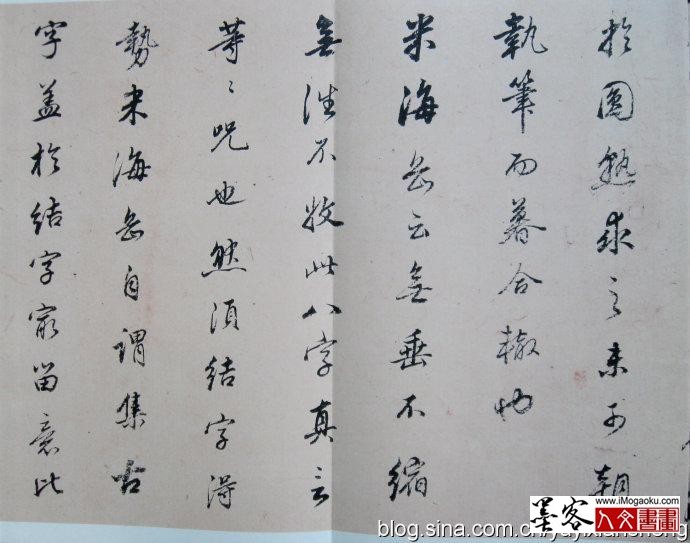 於圓熟求之未可朝
執筆而暮合轍也
米海岳云無垂不縮
無往不收此八字真言
等〻呪也然須結字得
勢米海岳自謂集古
字盖於結字最留意比
www.iMogaoku.com
墨客人文書畫